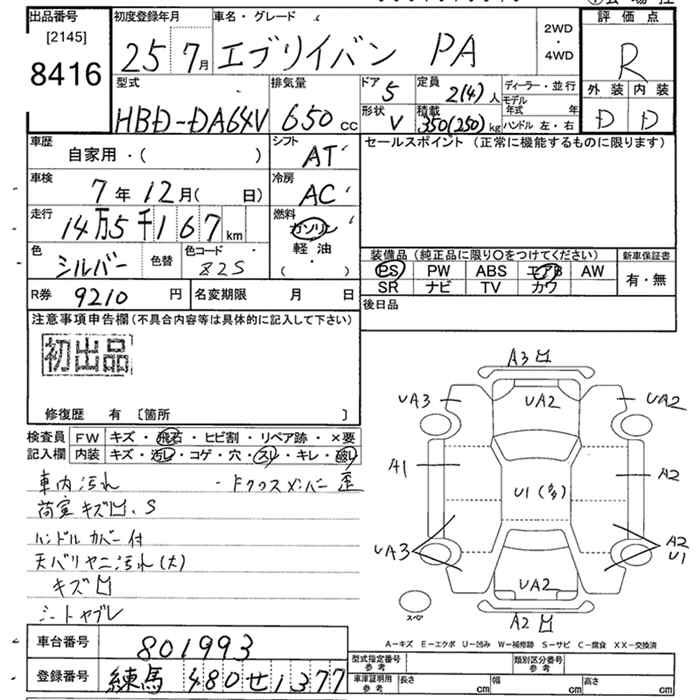 出品番号 初度登録年月 車名・グレード 2WD・4WD 評価点
[2145]
8416 25 7月 エブリイバン PA R
型式 排気量 ドア 5 定員 2(4)人 ディーラー・並行 外装 内装
HBD-DA64V 650cc 形状 V 積載 350(250)kg モデル年式 年 ハンドル 左・右 D D
車歴 自家用・( ) シフト AT セールスポイント(正常に機能するものに限ります)
車検 7年12月( 日) 冷房 AC
走行 14万5千167km 燃料 ガソリン 軽油 ・( )
色 シルバー 色替 色コード 82S
装備品(純正品に限り○をつけてください) 新車保証書
PS PW ABS エアB AW 有・無
SR ナビ TV カワ
R券 9210円 名変期限 月 日 後日品
注意事項申告欄(不具合内容等は具体的に記入して下さい)
初出品
修復歴 有 [箇所 ]
検査員 FW キズ・飛石・ヒビ割・リペア跡・×要
記入欄 内装 キズ・汚レ・コゲ・穴・スレ・キレ・破レ
車内汚れ ・Fクロスメンバー歪
荷室キズ凹、S
ハンドルカバー付
天バリヤニ汚れ(大)
キズ凹
シートヤブレ
A3凹
UA3 UA2 UA2
A1 U1 A2
UA3 A2 U1
UA2
A2凹
スペア
A-キズ E-エクボ U-凹み W-補修跡 S-サビ C-腐食 XX-交換済
車台番号 801993
登録番号 練馬 480 せ 1377
型式指定番号 参考 類別区分番号 参考
車庫証明用 参考 長さ cm 幅 cm 高さ cm